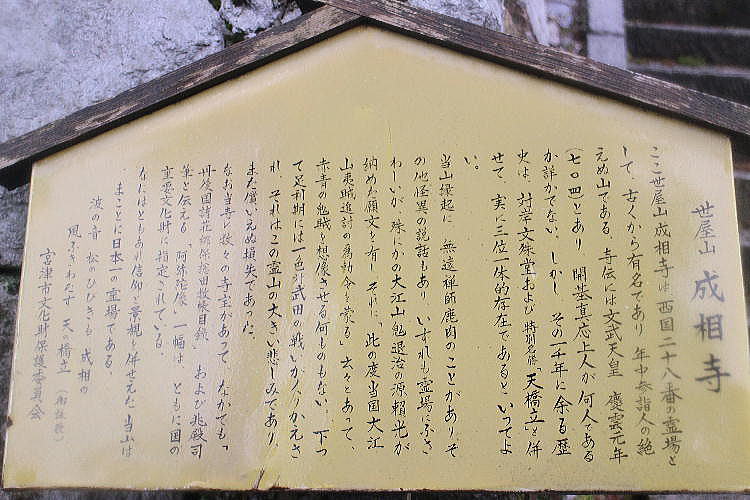 世屋山 成相寺
ここ世屋山成相寺は 西国二十八番の霊場と
して、古くから有名であり 年中参詣人の絶
えぬ山である。寺伝には文武天皇 慶雲元年
(七〇四)とあり 開基真応上人が何人である
か詳かでない。しかし、その一千年に余る歴
史は、対岸文珠堂および特別名勝「天橋立」と併
せて 実に三位一体的存在であるといってよ
い。
当山縁起に 無遠禅師鹿肉のことがありそ
の他怪異の説話もあり いずれも霊場にふさ
わしいが、殊にかの大江山鬼退治の源頼光が
納めた願文を有し それに「此の度当国大江
山夷賊追討の為勅令を蒙る」云々とあって、
赤青の鬼賊を想像させる何ものもない。下っ
て足利期には一色対武田の戦いがくりかえさ
れ、それはこの霊山の大きい悲しみであり
また償いえぬ損失であった。
なお当寺に数々の寺宝があって なかでも「
丹後国諸荘郷保総田数帳目録」 および兆殿司
筆と伝える「阿弥陀像」一幅は、ともに国の
重要文化財に指定されている。
なにはともあれ信仰と景観を併せえた当山は
まことに日本一の霊場である。
波の音 松のひびきも 成相の
風ふきわたす 天の橋立 (御詠歌)
宮津市文化財保護委員会